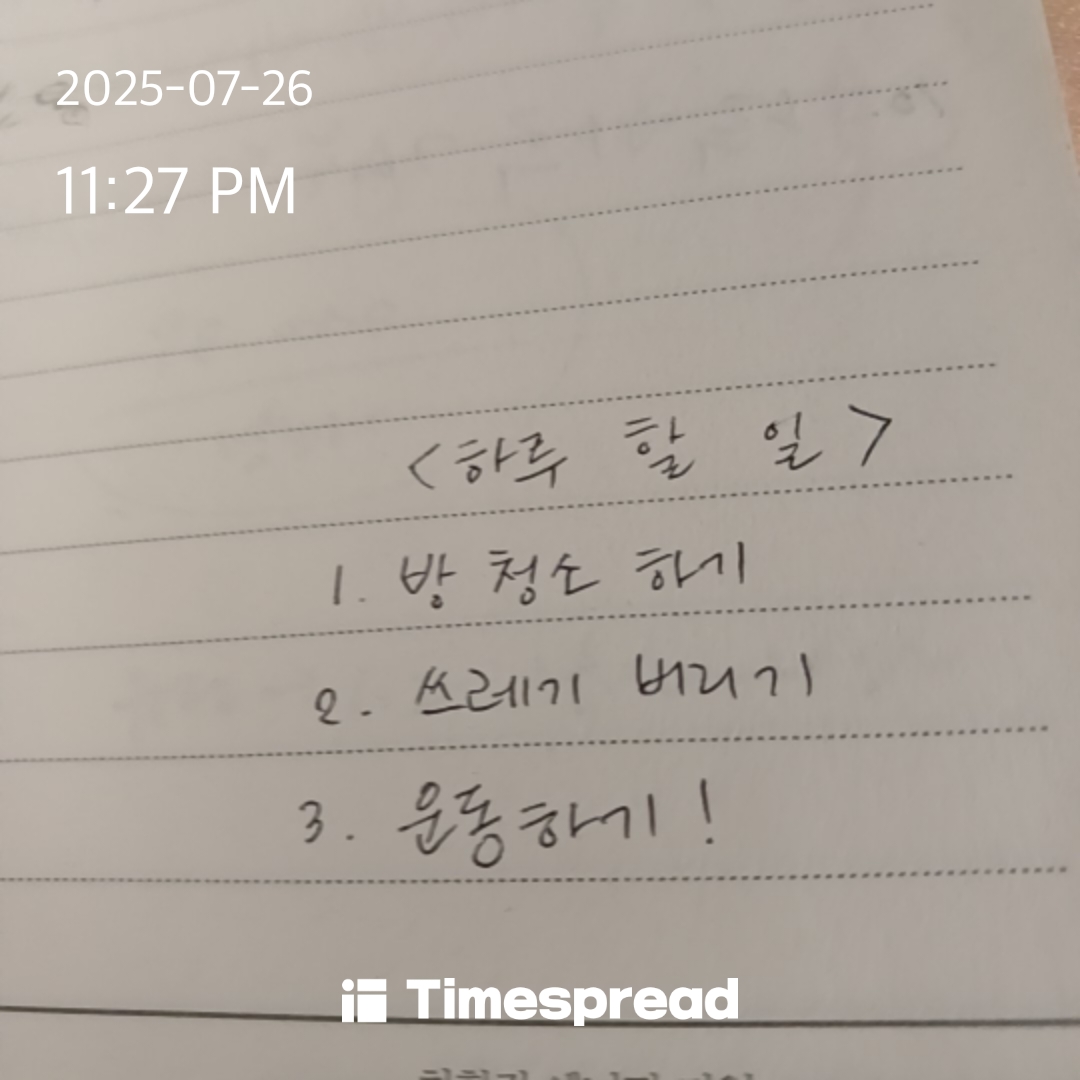 2025-07-26
11:27 PM
<하루 할 일>
1. 방 청소 하기
2. 쓰레기 버리기
3. 운동하기!
Timespread